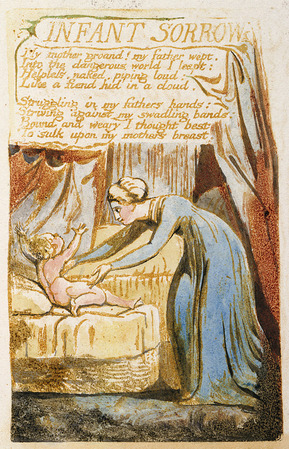 INFANT SORROW
My mother groand! my father wept.
Into the dangerous world I leapt:
Helpless, naked, piping loud:
Like a fiend hid in a cloud.
Struggling in my fathers hands:
Striving against my swadling bands:
Bound and weary I thought best
To sulk upon my mothers breast